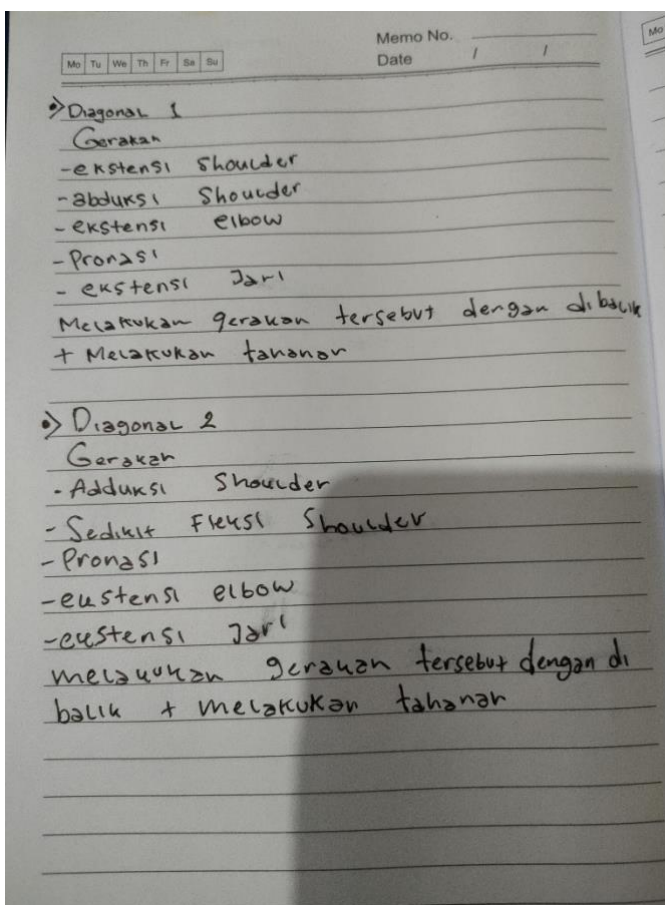 Mo
Memo No.
Mo Tu We Th Fr Sa Su
Date / /
Diagonal 1
Gerakan
-ekstensi Shoulder
-abduksi Shoulder
-ekstensi elbow
-Pronasi
- ekstensi Jari
Melakukan gerakan tersebut dengan dibalik
+ Melakukan tahanan
Diagonal 2
Gerakan
- Adduksi Shoulder
- Sedikit Fleksi Shoulder
- Pronasi
-ekstensi elbow
-ekstensi Jari
melakukan gerakan tersebut dengan di
balik + melakukan tahanan